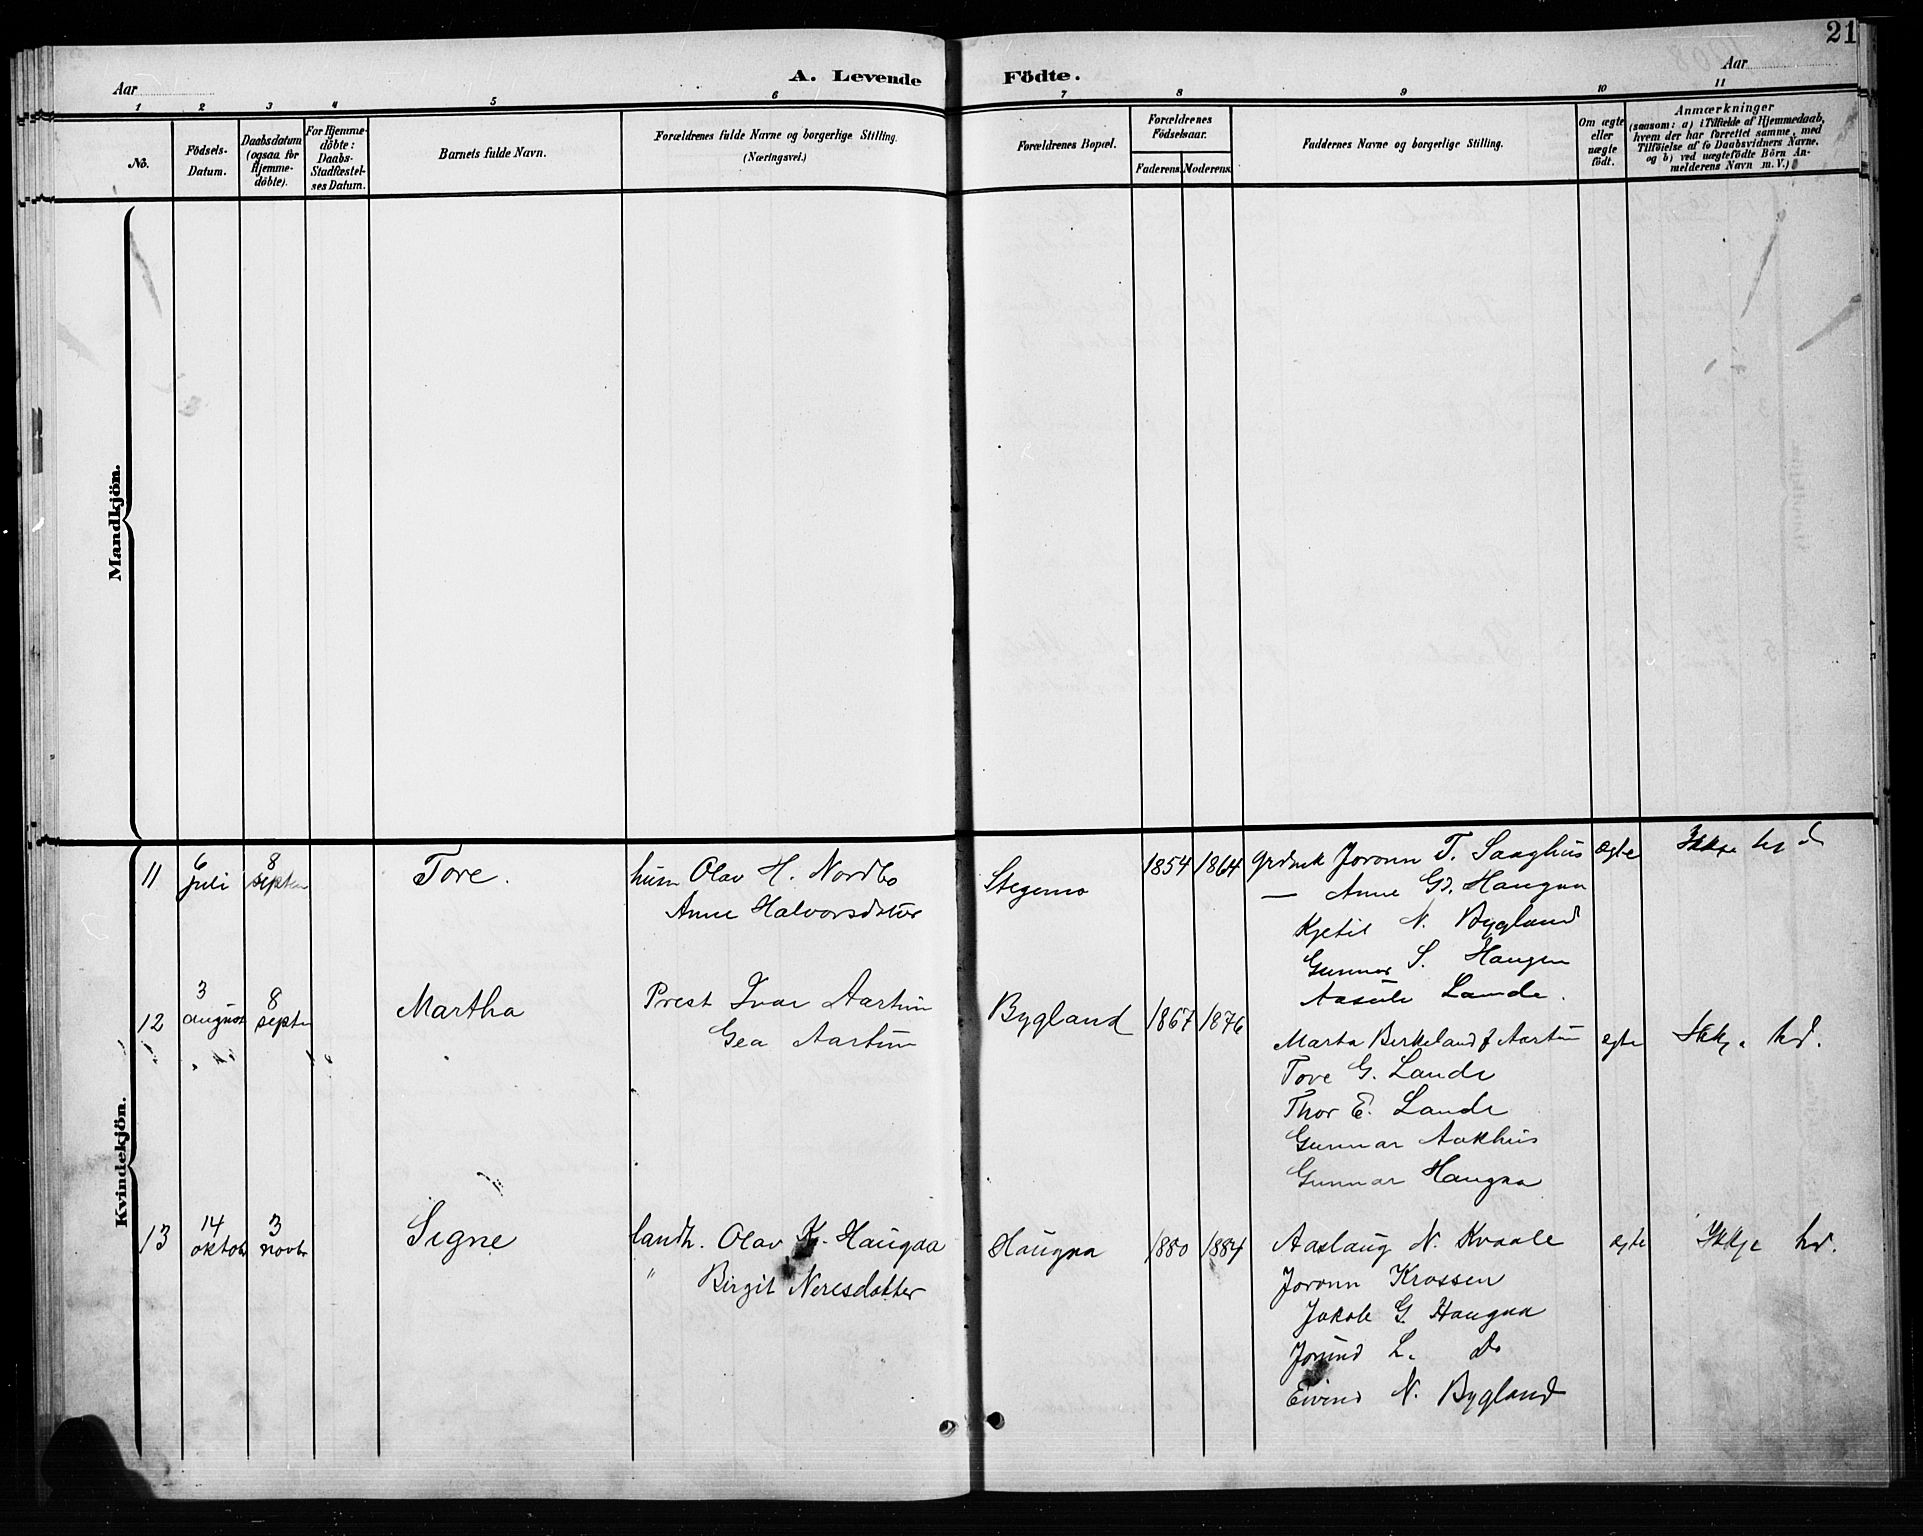 21
Aar
A. Levende Födte.
Aar
1 2 3 4 5 6 7 8 9 10 11
No.
Födsels-
Datum.
Daabsdatum
(ogsaa for
Hjemme-
döbte).
For Hjemme-
döbte:
Daabs-
Stadfæstel-
ses Datum.
Barnets fulde Navn.
Forældrenes fulde Navne og borgerlige Stilling.
(Næringsvei.)
Forældrenes Bopæl.
Forældrenes
Födselsaar.
Faderens. Moderens.
Faddernes Navne og borgerlige Stilling.
Om ægte
eller
uægte
födt.
Anmærkninger
(saasom: a) i Tilfælde af Hjemmedaab,
hvem der har forrettet samme, med
Tilföielse af to Daabsvidners Navne.
og b) ved uægtefödte Börn An-
melderens Navn m. V.)
Mandkjön.
Kvindekjön.
11
6
juli
8
septem
Tore.
husm Olav H. Nordbo
Anne Halvorsdotter
Stegemo
1854 1864
Joronn T. Saaghus
— Anne Gd. Haugaa
Kjetil N. Bygland
Gunnar S. Haugen
Aasule Lande.
ægte
Ikkje
12
3
august
8
septem
Martha
Prest Ivar Aartun
Gea Aartun
Bygland
1867 1876
Marta Berkeland f Aartun
Tove G. Lande
Thor E. Lande
Gunnar Aakhus
Gunnar Haugaa
ægte
Ikkje hd.
13
14
oktob
3
novbr
Signe
landh. Olav K. Haugaa
" Birgit Neresdotter
Haugaa
1880 1884
Aaslaug N. Kvaale
Joronn Krossen
Jakob G Haugaa
Jorund L. Do
Eivind N. Bygland
ægte
Ikkje hd.